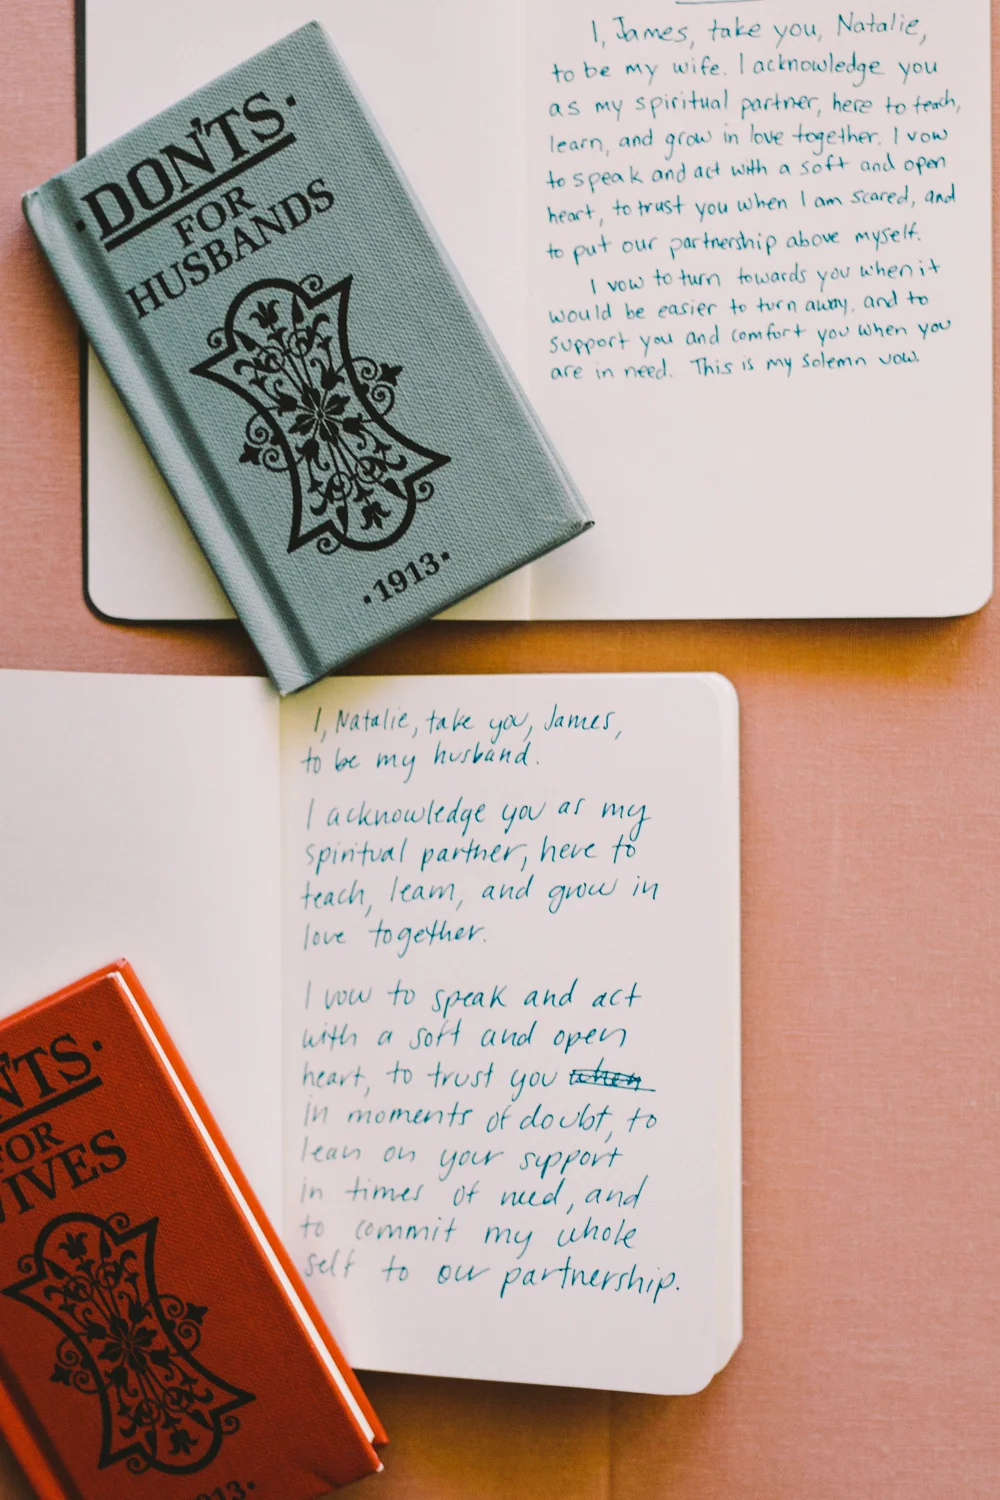 ·DON'TS·
FOR
HUSBANDS
·1913·
I, James, take you, Natalie,
to be my wife. I acknowledge you
as my spiritual partner, here to teach,
learn, and grow in love together. I vow
to speak and act with a soft and open
heart, to trust you when I am scared, and
to put our partnership above myself.
I vow to turn towards you when it
would be easier to turn away, and to
support you and comfort you when you
are in need. This is my solemn vow.
I, Natalie, take you, James,
to be my husband.
I acknowledge you as my
spiritual partner, here to
teach, learn, and grow in
love together.
I vow to speak and act
with a soft and open
heart, to trust you when
in moments of doubt, to
lean on your support
in times of need, and
to commit my whole
self to our partnership.
NTS·
FOR
WIVES
1913·